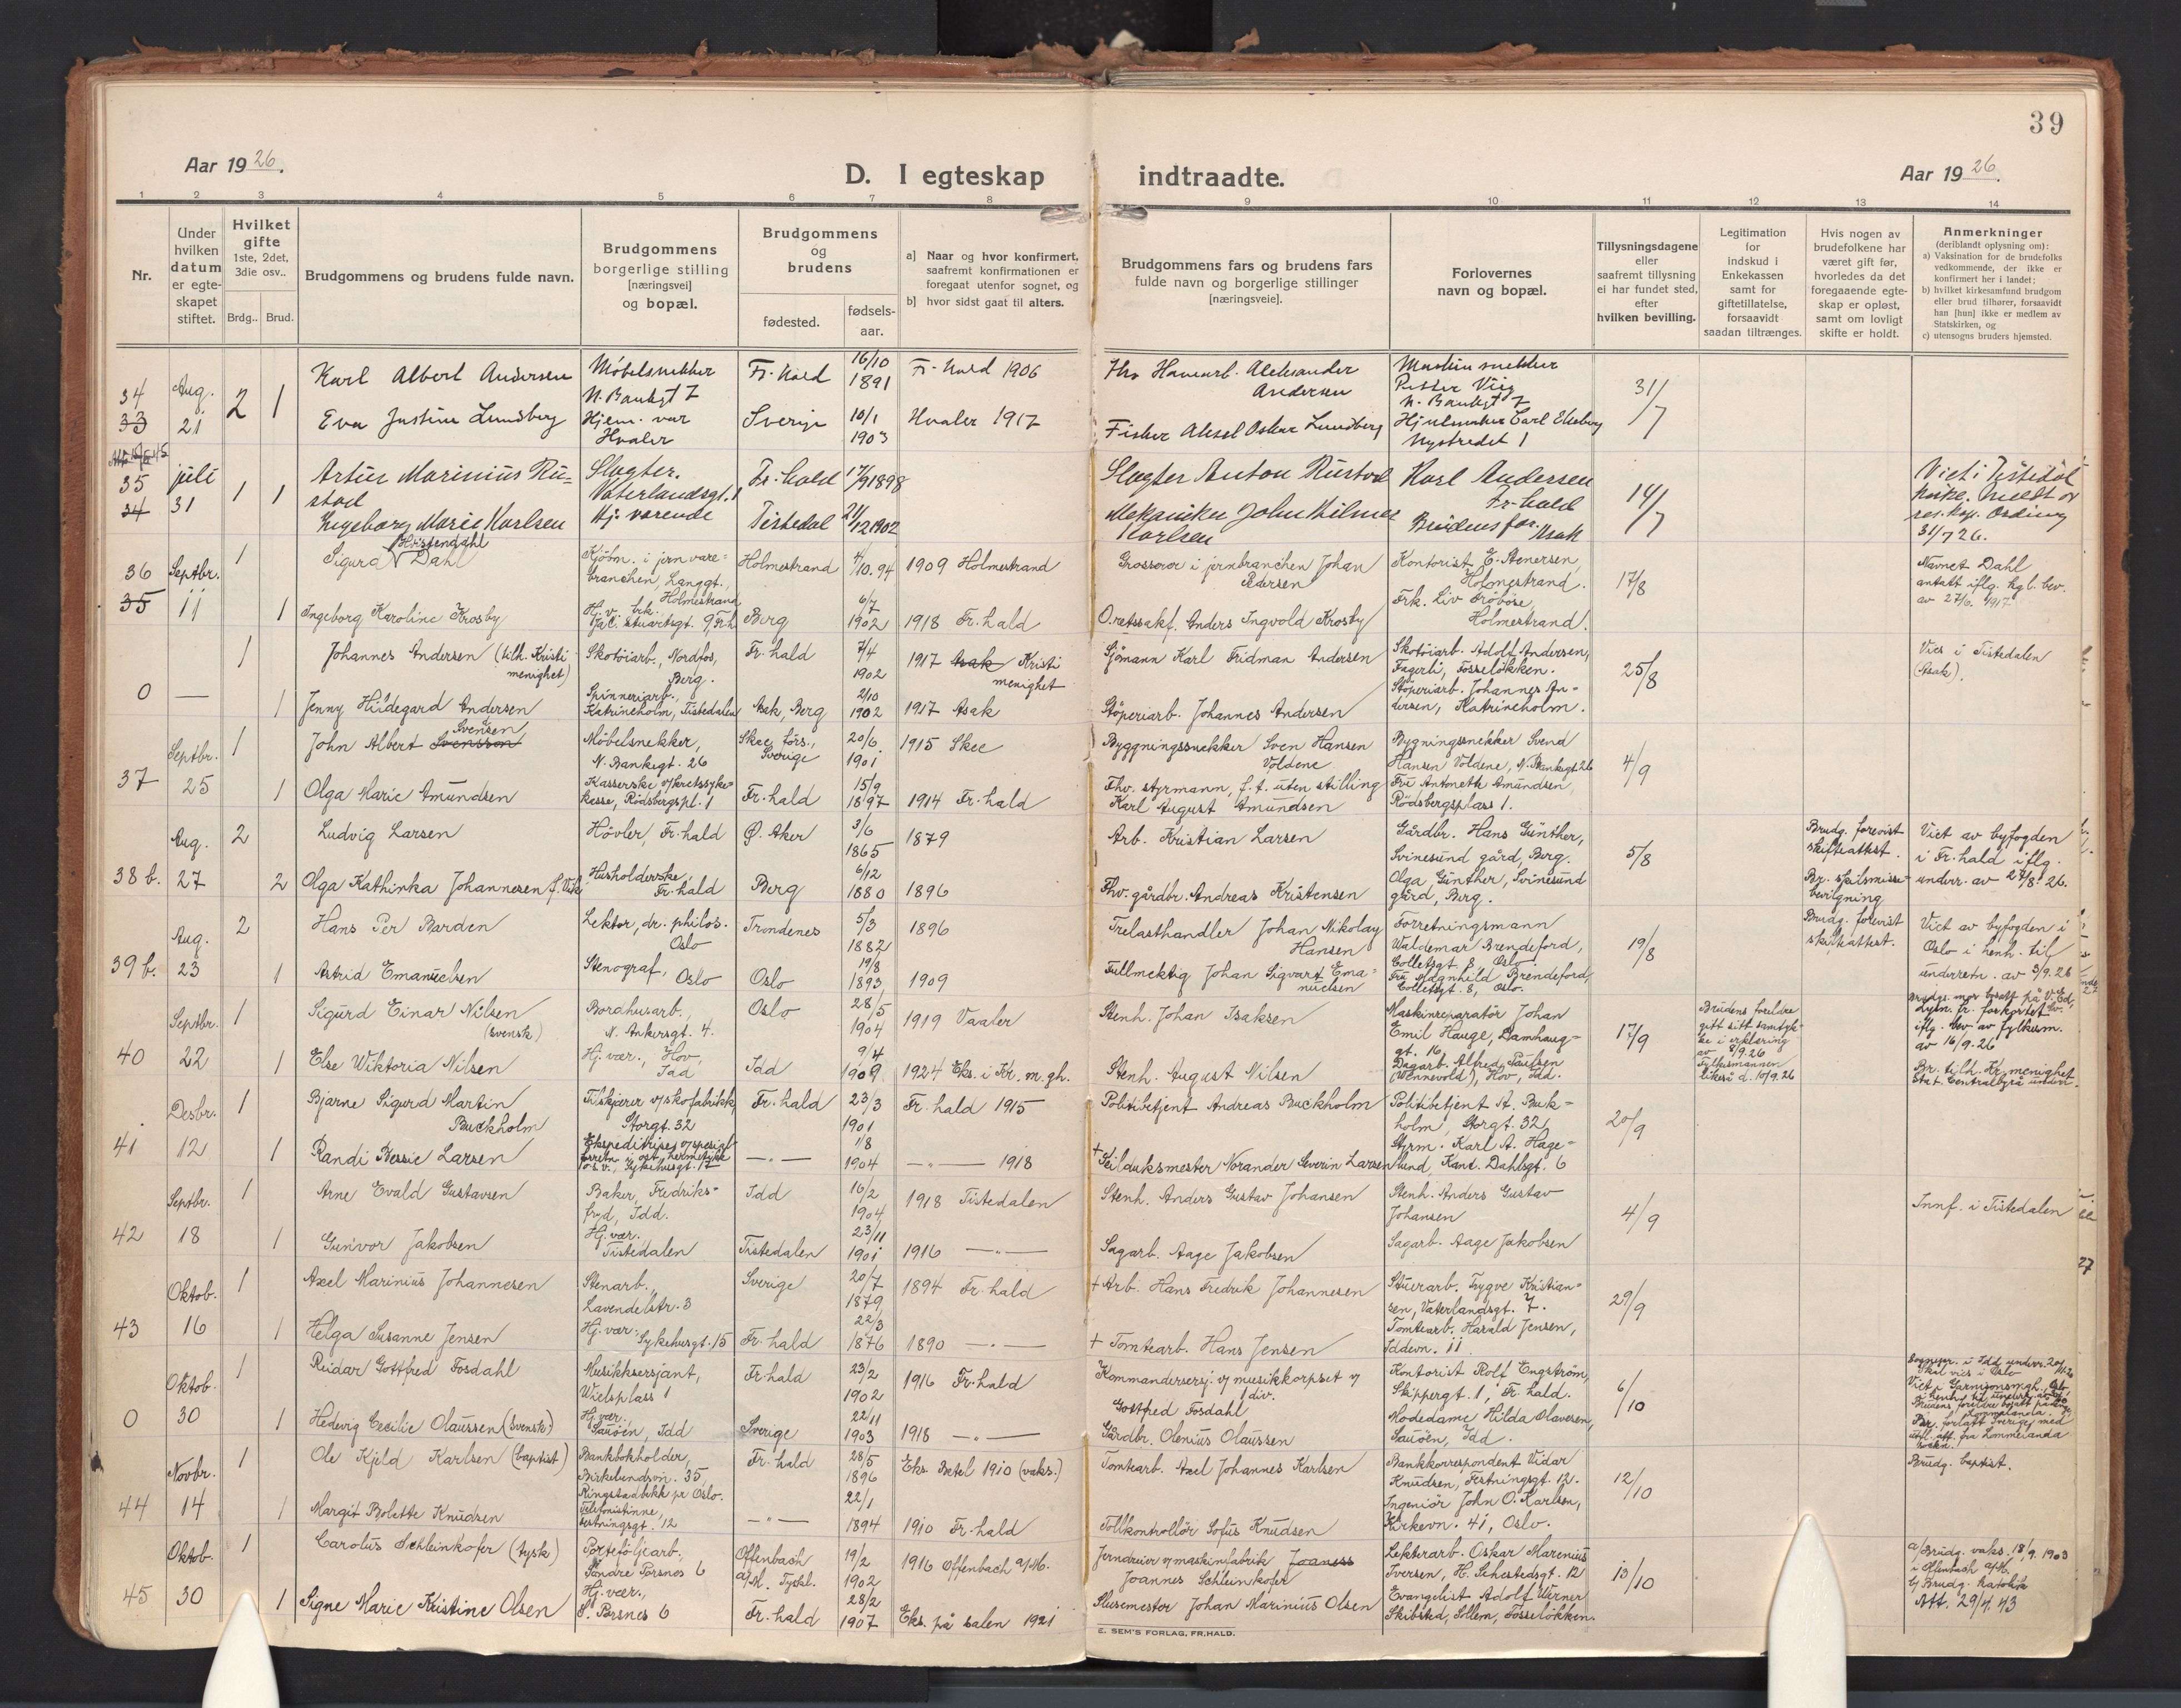 39
Aar 1926.
D. I egteskap indtraadte.
Aar 1926.
1 2 3 4 5 6 7 8 9 10 11 12 13 14
Nr.
Under hvilken datum er egte-skapet stiftet.
Hvilket gifte 1ste, 2det, 3die osv..
Brdg.. Brud.
Brudgommens og brudens fulde navn.
Brudgommens borgerlige stilling [næringsvei] og bopæl.
Brudgommens og brudens
fødested.
fødsels-aar.
a] Naar og hvor konfirmert, saafremt konfirmationen er foregaat utenfor sognet, og
b] hvor sidst gaat til alters.
Brudgommens fars og brudens fars fulde navn og borgerlige stillinger [næringsveie].
Forlovernes navn og bopæl.
Tillysningsdagene eller saafremt tillysning ei har fundet sted, efter hvilken bevilling.
Legitimation for indskud i Enkekassen samt for giftetillatelse, forsaavidt saadan tiltrænges.
Hvis nogen av brudefolkene har været gift før, hvorledes da det foregaaende egte-skap er opløst, samt om lovligt skifte er holdt.
Anmerkninger (deriblandt oplysning om):
a) Vaksination for de brudefolks vedkommende, der ikke er konfirmert her i landet;
b) hvilket kirkesamfund brudgom eller brud tilhører, forsaavidt han [hun] ikke er medlem av Statskirken, og
c) utensogns bruders hjemsted.
34 33 Aug. 21 2 1
Karl Albert Andersen Møbelsnekker N. Bankgt 7 Fr. hald 16/10 1891 Fr. hald 1906 Fhv Havnearb. Aleksander Andersen Maskinsnekker Petter Vig N. Bankgt 7 31/7
Eva Justine Lundberg Hjem. vær Hvaler Sverige 10/1 1903 Hvaler 1917 Fisker Aksel Oskar Lundberg Hjulmaker Carl Ekeberg Nystredet 1
35 34 juli 31 1 1
Artur Marinius Rustad Slagter. Vaterlandsgt. 1 Fr. hald 17/9 1898 Slagter Anton Rustad Karl Andersen Fr. hald 14/7 Viet i Tistedal kirke. Meldt av res. kap. Ording 31/7 26.
Ingeborg Marie Karlsen Hj. værende Tistedal 21/12 1902 Mekaniker John Hilmer Karlsen Brudens far. Asak
36 35 Septbr. 11 1 1
Sigurd Hvistendahl Dahl Kjøbm. i jernvare-branchen, Langgt., Holmestrand Holmestrand 4/10.94 1909 Holmestrand Grosserer i jernbranchen Johan Pedersen Kontorist E. Stenersen, Holmestrand. 17/8 Navnet Dahl antatt iflg. kgl. bev. av 27/6. 1917
Ingeborg Karoline Krosby Hj. v. frk. Jac. Stuartsgt. 9, Fr.h. Berg 6/7 1902 1918 Fr. hald O.retssakf. Anders Ingvold Krosby Frk. Liv Fröböse, Holmestrand.
0 — 1 1
Johannes Andersen (tilh. Kristi menighet) Skotöiarb., Nordfos, Berg. Fr. hald 7/4 1902 1917 Asak Kristi menighet Sjömann Karl Fridman Andersen Skotöiarb. Adolf Andersen, Fagerli, Fosseløkken. 25/8 Vies i Tistedalen (Asak).
Jenny Hildegard Andersen Spinneriarb., Katrineholm, Tistedalen Asak, Berg 2/10 1902 1917 Asak Støperiarb. Johannes Andersen Støperiarb. Johannes Andersen, Katrineholm.
37 Septbr. 25 1 1
John Albert Svensson Svendsen Møbelsnekker, N. Bankegt. 26 Skee förs., Sverige 20/6 1901 1915 Skee Byggningssnekker Sven Hansen Voldene Bygningssnekker Svend Hansen Voldene, N. Bankegt 26 4/9
Olga Marie Amundsen Kasserske v/kretssyke-kasse, Rödsbergspl. 1 Fr. hald 15/9 1897 1914 Fr. hald Fhv. styrmann, f. t. uten stilling Karl August Amundsen Fru Antonette Amundsen, Rödsbergsplass 1.
38 b. Aug. 27 2 2
Ludvig Larsen Hövler, Fr. hald Ø. Aker 3/6 1865 1879 Arb. Kristian Larsen Gårdbr. Hans Günther, Svinesund gård, Berg. 5/8 Brudg. forevist skifteattest. Viet av byfogden i Fr. hald iflg. underr. av 27/8. 26.
Olga Kathinka Johannesen f. Vik Husholderske, Fr. hald Berg 6/12 1880 1896 Fhv. gårdbr. Andreas Kristensen Olga Günther, Svinesund gård, Berg. Br. skilsmisse-bevilgning
39 b. Aug. 23 2 1
Hans Per Barden Lektor, dr. philos. Oslo Trondenes 5/3 1882 1896 Trelasthandler Johan Nikolay Hansen Forretningsmann Waldemar Brendeford, Colletsgt. 8, Oslo. 19/8 Brudg. forevist skifteattest. Viet av byfogden i Oslo i henh. til underretn. av 3/9. 26
Astrid Emanuelsen Stenograf, Oslo Oslo 19/8 1893 1909 Fullmektig Johan Sigvart Emanuelsen Fru Magnhild Brendeford, Colletsgt. 8, Oslo.
40 Septbr. 22 1 1
Sigurd Einar Nilsen (svensk) Bordhusarb., N. Ankersgt. 4. Oslo 28/5 1904 1919 Vaaler Stenh. Johan Isaksen Maskinreparatör Johan Emil Hauge, Damhaug-gt. 16 17/9 Brudens foreldre gitt sitt samtyk-ke i erklæring av 8/9. 26 Fylkesmannen likeså d. 10/9. 26 Lysn. fr. forkortet iflg. bev av fylkesm. av 16/9. 26
Else Wiktoria Nilsen Hj. vær., Hov, Idd Idd 9/4 1909 1924 Eks. i Kr. m. gh. Stenh. August Nilsen Dagarb. Alfred Paulsen (Wennevold), Hov, Idd. Br. tilh. Kr. menighet Stat. Centralbyrå underr.
41 Desbr. 12 1 1
Bjarne Sigurd Martin Buckholm Tilskjærer v/skofabrikk, Storgt. 32 Fr. hald 23/3 1901 Fr. hald 1915 Politibetjent Andreas Buckholm Politibetjent A. Buk-holm, Storgt. 32, 20/9
Randi Bessie Larsen Ekspeditrise v/spesial-forretn. i ost, hermetikk o. s. v., Sykehusgt. 17 —"— 1/8 1904 —"— 1918 + Seilduksmester Norander Severin Larsen Styrm. Karl A. Hage-lund, Kand. Dahlsgt. 6
42 Septbr. 18 1 1
Arne Evald Gustavsen Baker, Fredriks-fryd, Idd. Idd 16/2 1904 1918 Tistedalen Stenh. Anders Gustav Johansen Stenh. Anders Gustav Johansen 4/9 Innf. i Tistedalen
Gunvor Jakobsen Hj. vær. Tistedalen Tistedalen 23/11 1901 1916 —"— Sagarb. Aage Jakobsen Sagarb. Aage Jakobsen
43 Oktob. 16 1 1
Axel Marinius Johannesen Stenarb., Lavendelstr. 3 Sverige 20/7 1879 1894 Fr. hald + Arb. Hans Fredrik Johannesen Stuerarb. Trygve Kristian-sen, Vaterlandsgt. 7. 29/9
Helga Susanne Jensen Hj. vær. Sykehusgt. 15 Fr. hald 22/3 1876 1890 —"— + Tomtearb. Hans Jensen Tomtearb. Harald Jensen, Iddevn. 11
0 Oktob. 30 1 1
Reidar Gottfred Fosdahl Musikksersjant, Wielsplass 1 Fr. hald 23/2 1902 1916 Fr. hald Kommandersersj. v/ musikkorpset v/ 1 div. Gottfred Fosdahl Kontorist Rolf Engström, Skippergt. 1, Fr. hald. 6/10
Hedevig Cecilie Olaussen (svensk) Hj. vær. Sauöen, Idd Sverige 22/11 1903 1918 —"— Gårdbr. Olenius Olaussen Modedame Hilda Olavesen, Sauöen, Idd. Br. forlatt Sverige med utfl. att. fra Lommelanda sokn.
44 Novbr. 14 1 1
Ole Kjeld Karlsen (baptist) Bankbokholder, Birkelundsvn. 35, Ringstadbekk pr Oslo. Fr. hald 28/5 1896 Eks. Betel 1910 (vaks.) Tomtearb. Axel Johannes Karlsen Bankkorrespondent Vidar Knudsen, Festningsgt. 12. 12/10 Brudg. baptist.
Margit Bolette Knudsen Telefonistinne, Festningsgt. 12 —"— 22/1 1894 1910 Fr. hald Tollkontrollör Sofus Knudsen Ingeniör John O. Karlsen, Kirkevn. 41, Oslo.
45 Oktob. 30 1 1
Carolus Schleinkofer (tysk) Porteföljearb., Söndre Porsnes 6 Offenbach a/M. Tyskl. 19/2 1902 1916 Offenbach a/M. Jerndreier v/ maskinfabrik Joaness Joannes Schleinkofer Lekterarb. Oskar Marenius Iversen, H. Sehestedsgt. 12 13/10 a/ Brudg. vaks. 18/9. 1903 i Offenbach a/M. b/ Brudg. katolik Att. 29/4. 43
Signe Marie Kristine Olsen Hj. vær., S. Porsnes 6 Fr. hald 28/2 1907 Eks. på salen 1921 Slusemester Johan Marinius Olsen Evangelist Adolf Werner Skibsted, Sollem, Fosseløkken.
E. SEM'S FORLAG, FR.HALD.